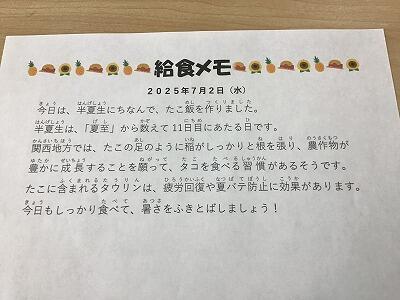 給食メモ
2025年7月2日（水）
今日は、半夏生にちなんで、たこ飯を作りました。
半夏生は、「夏至」から数えて11日目にあたる日です。
関西地方では、たこの足のように稲がしっかりと根を張り、農作物が
豊かに成長することを願って、タコを食べる習慣があるそうです。
たこに含まれるタウリンは、疲労回復や夏バテ防止に効果があります。
今日もしっかり食べて、暑さをふきとばしましょう！